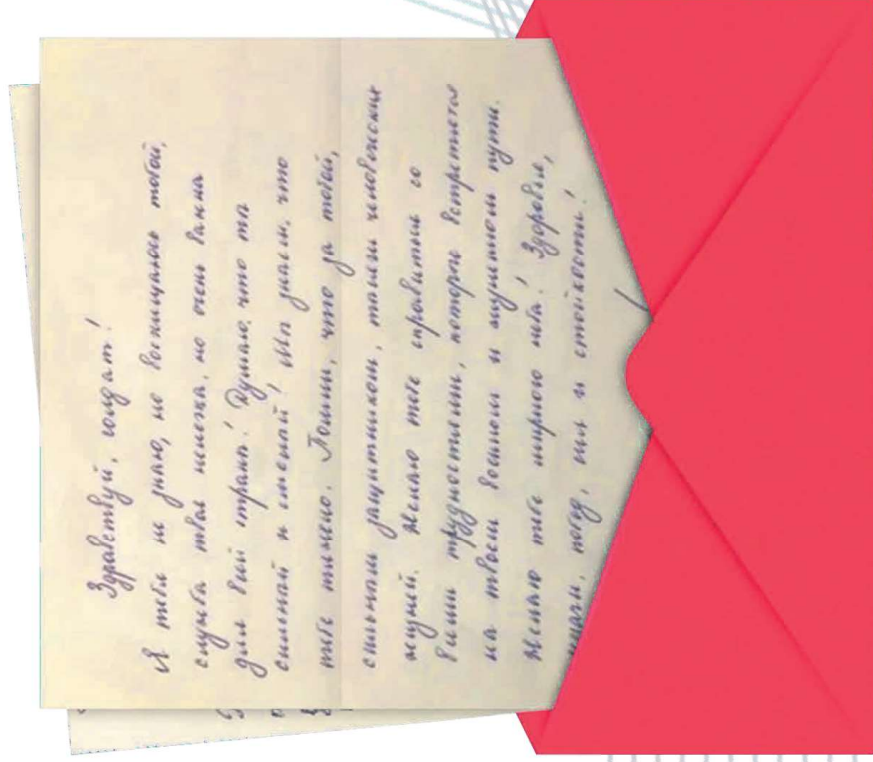 Здравствуй, солдат!
Я тебя не знаю, но восхищаюсь тобой,
служба твоя нелегка, но очень важна
для всей страны! Думаю, что ты
сильный и смелый! Мы знаем, что
тебе тяжело. Помни, что за тобой,
сильным защитником, тысячи человеческих
жизней. Желаю тебе справиться со
всеми трудностями, которые встретятся
на твоем военном и жизненном пути.
Желаю тебе мирного неба! Здоровья,
удачи, побед, сил и стойкости!